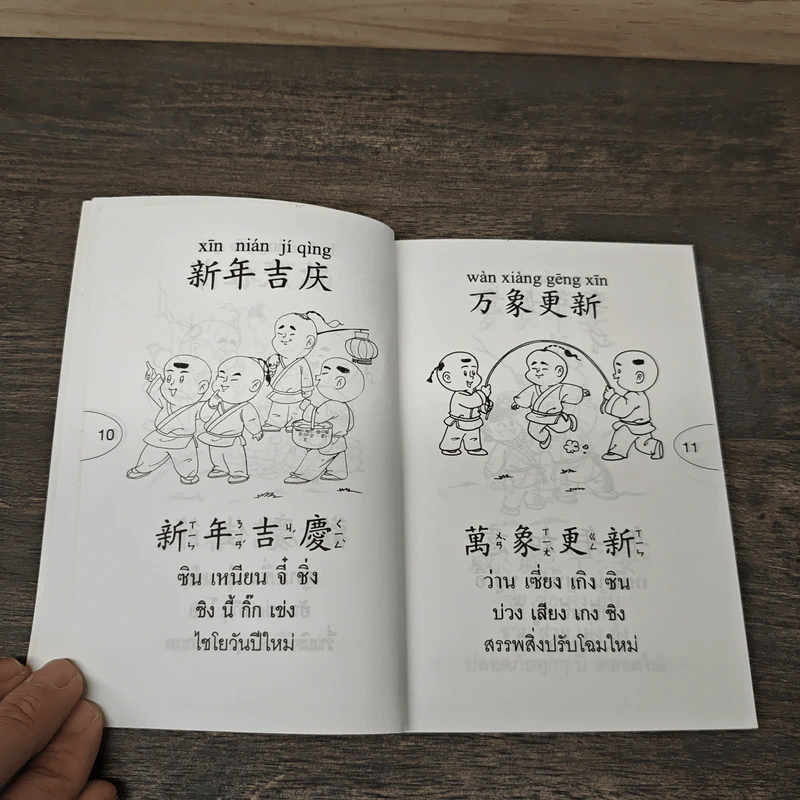 xīn nián jí qìng
新年吉庆
10
新ㄒㄧㄣ 年ㄋㄧㄢˊ 吉ㄐㄧˊ 慶ㄑㄧㄥˋ
ซิน เหนียน จี๋ ชิ่ง
ซิง นี้ กิ๊ก เข่ง
ไชโยวันปีใหม่
wàn xiàng gēng xīn
万象更新
11
萬ㄨㄢˋ 象ㄒㄧㄤˋ 更ㄍㄥ 新ㄒㄧㄣ
ว่าน เซี่ยง เกิง ซิน
บ่วง เสียง เกง ซิง
สรรพสิ่งปรับโฉมใหม่